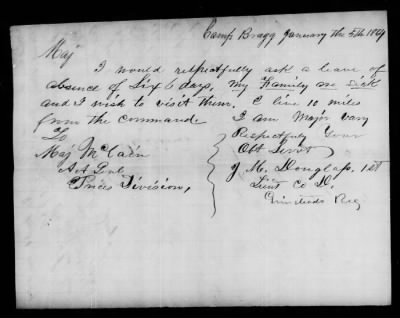 Camp Bragg January the 5th 1864
Maj
I would respectfully ask a leave of
absence of Six 6 days, my Family are Sick
and I wish to visit them. I live 10 miles
from the command. I am Major vary
Respectfully Your
Obt Servt
J. M. Douglass, 1st
Lieut Co D.
Reg
To
Maj McCain
A A Genl
Prices Division,